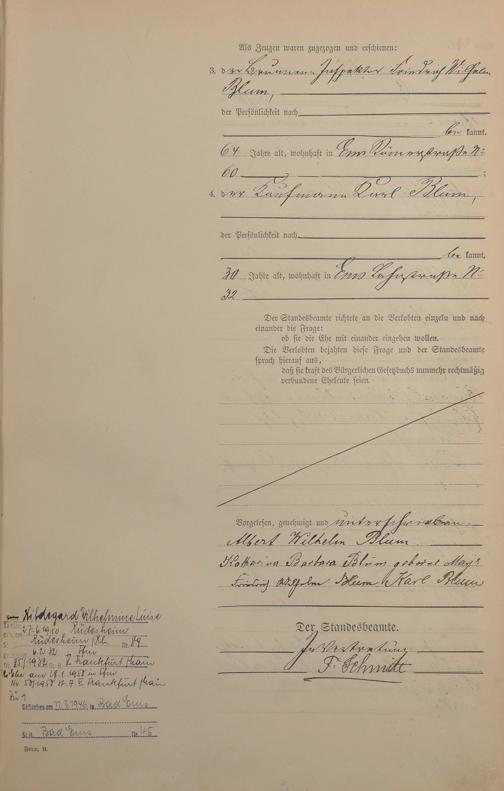 Als Zeugen waren zugezogen und erschienen:
3. der Brunnen-Inspektor Friedrich Wilhelm
Blum,
der Persönlichkeit nach
be kannt,
64 Jahre alt, wohnhaft in Ems Römerstraße No
60 ;
4. der Kaufmann Karl Blum,
der Persönlichkeit nach
be kannt,
30 Jahre alt, wohnhaft in Ems Lahnstraße No
32
Der Standesbeamte richtete an die Verlobten einzeln und nach
einander die Frage:
ob sie die Ehe mit einander eingehen wollen.
Die Verlobten bejahten diese Frage und der Standesbeamte
sprach hierauf aus,
daß sie kraft des Bürgerlichen Gesetzbuchs nunmehr rechtmäßig
verbundene Eheleute seien.
Vorgelesen, genehmigt und unterschrieben
Albert Wilhelm Blum
Katharina Barbara Blum geborene May
Friedrich Wilhelm Blum Karl Blum
Der Standesbeamte.
In Vertretung
F. Schmitt
Hildegard Wilhelmine Luise
27.6.1910 Rüdesheim
Rüdesheim/Rh. Nr. 49
6.2.32 Ffm
85/1932 Frankfurt/Main
Ehe am 18.1.1958 in Ffm
Nr. 58/1958 Frankfurt/Main
Gestorben am 11.3.1946 in Bad Ems
St.A. Bad Ems Nr. 45
Form. B.